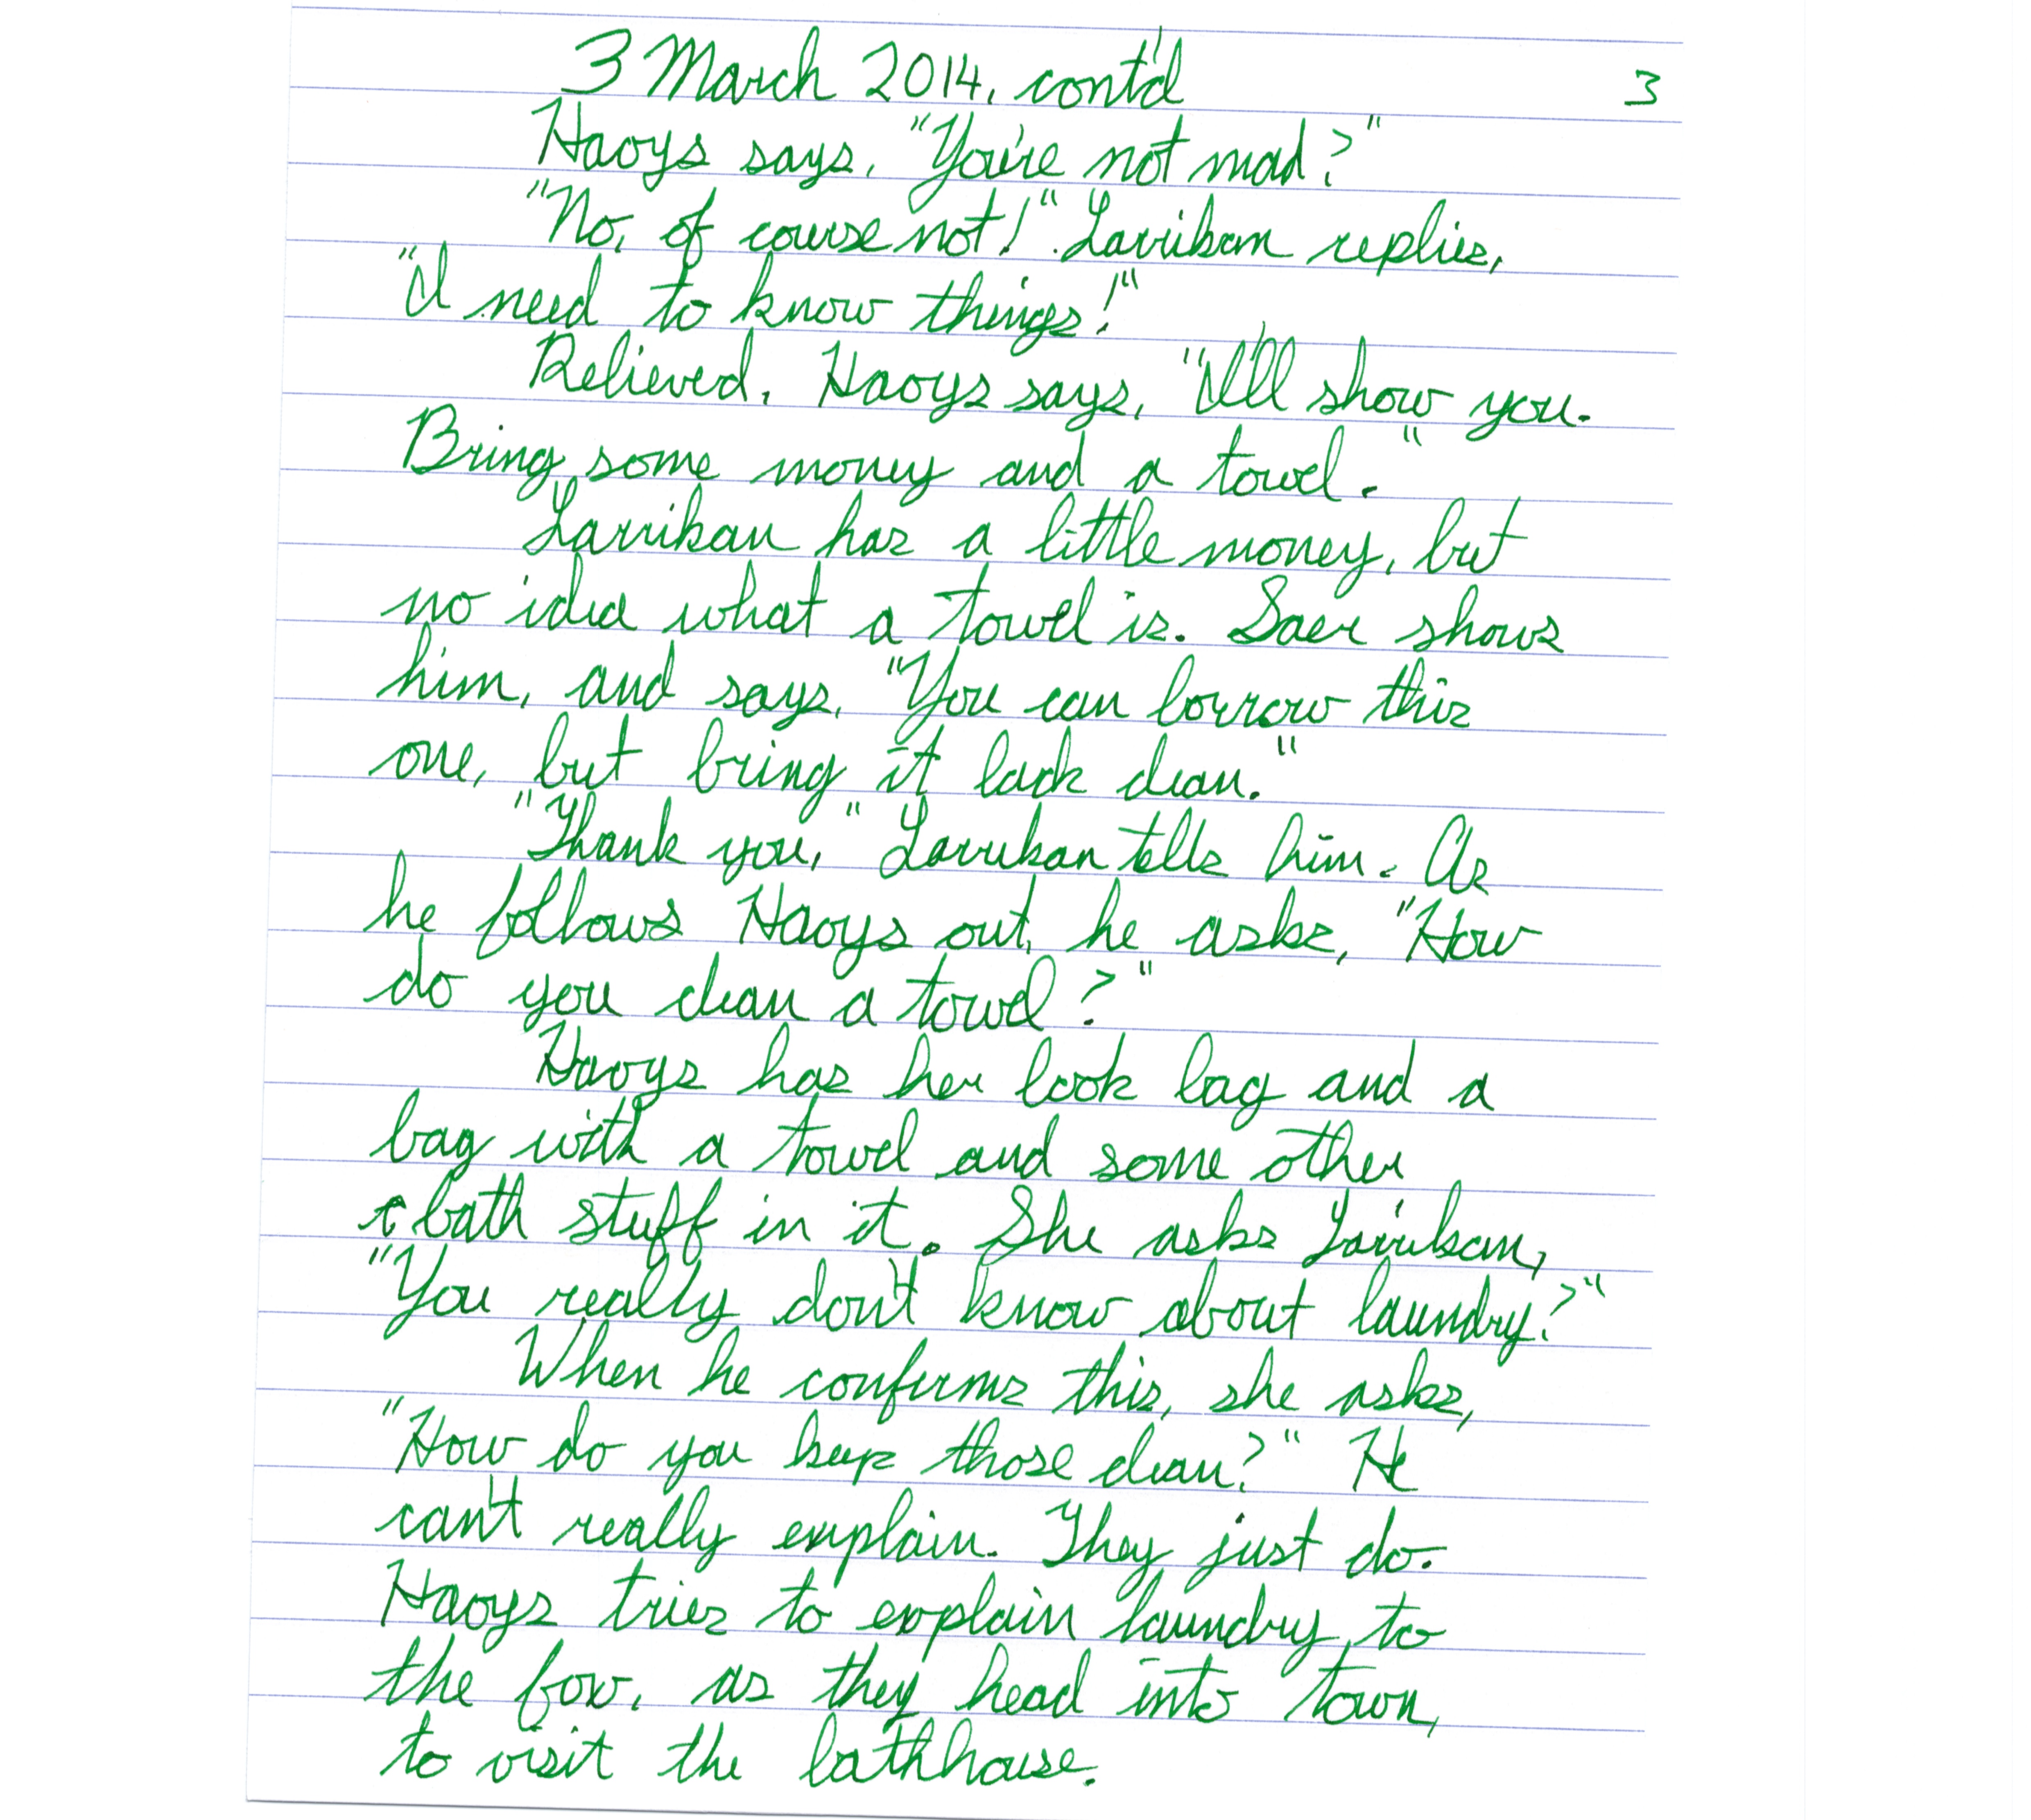 3 March 2014, cont'd 3
Haoys says, "You're not mad?"
"No, of course not!" Larrikan replies,
"I need to know things!"
Relieved, Haoys says, "I'll show you.
Bring some money and a towel."
Larrikan has a little money, but
no idea what a towel is. Saer shows
him, and says, "You can borrow this
one, but bring it back clean."
"Thank you," Larrikan tells him. As
he follows Haoys out, he asks, "How
do you clean a towel?"
Haoys has her book bag and a
bag with a towel and some other
bath stuff in it. She asks Larrikan,
"You really don't know about laundry?"
When he confirms this, she asks,
"How do you keep those clean?" He
can't really explain. They just do.
Haoys tries to explain laundry to
the fox, as they head into town,
to visit the bathhouse.